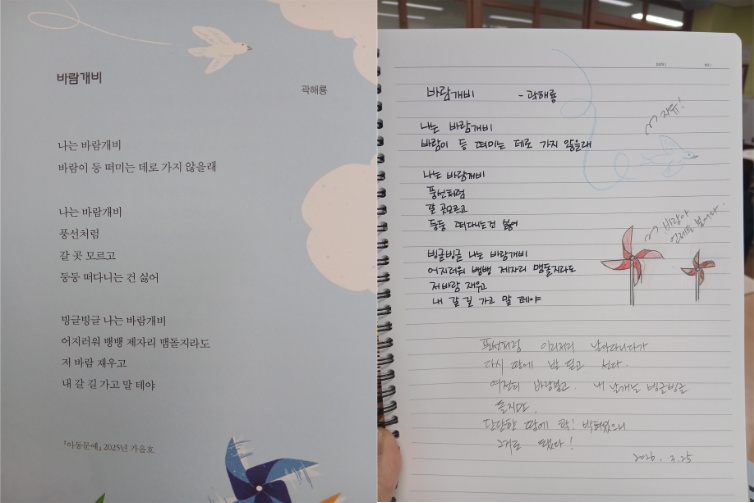 바람개비
곽해룡
나는 바람개비
바람이 등 떠미는 데로 가지 않을래
나는 바람개비
풍선처럼
갈 곳 모르고
둥둥 떠다니는 건 싫어
빙글빙글 나는 바람개비
어지러워 뱅뱅 제자리 맴돌지라도
저 바람 재우고
내 갈 길 가고 말 테야
『아동문예』 2025년 가을호
바람개비 - 곽해룡
나는 바람개비
바람이 등 떠미는 데로 가지 않을래
나는 바람개비
풍선처럼
갈 곳모르고
둥둥 떠다니는건 싫어
빙글빙글 나는 바람개비
어지러워 뱅뱅 제자리 맴돌지라도
저바람 재우고
내 갈 길 가고 말 테야
자유!
바람아
풍선처럼 이리저리 날아다니다가
다시 땅에 발 딛고 섰다.
여전히 바람불고. 내 날개는 빙글빙글
단단한 땅에 콱! 박혀있으니
그거로 됐다!
2026. 3. 25